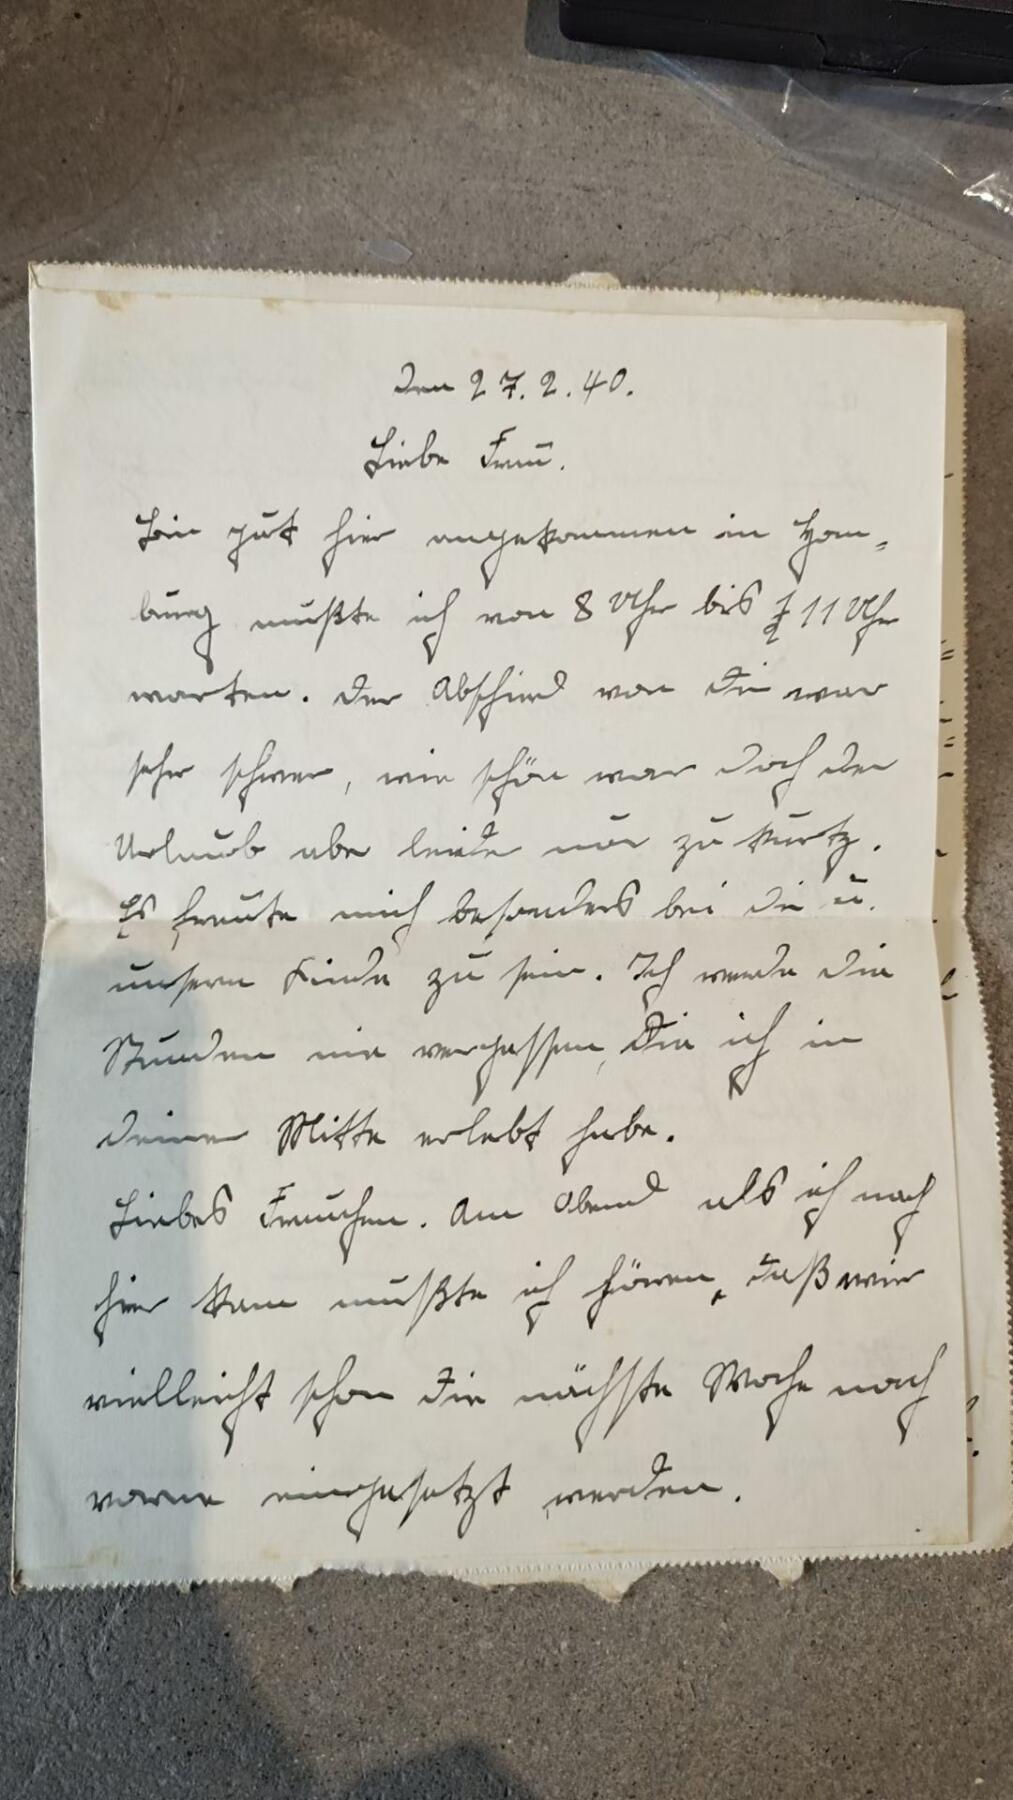 den 27.2.40.
Liebe Frau.
Bin gut hier angekommen in Ham-
burg mußte ich von 8 Uhr bis ½ 11 Uhr
warten. Der Abschied von Dir war
sehr schwer, wie schön war doch der
Urlaub aber leider nur zu kurtz.
Es freute mich besonders bei Dir u.
unsern Kinde zu sein. Ich werde die
Stunden nie vergessen, die ich in
deiner Mitte erlebt habe.
Liebes Frauchen. Am Abend als ich nach
hier kam mußte ich hören, daß wir
vielleicht schon die nächste Woche nach
vorne eingesetzt werden.